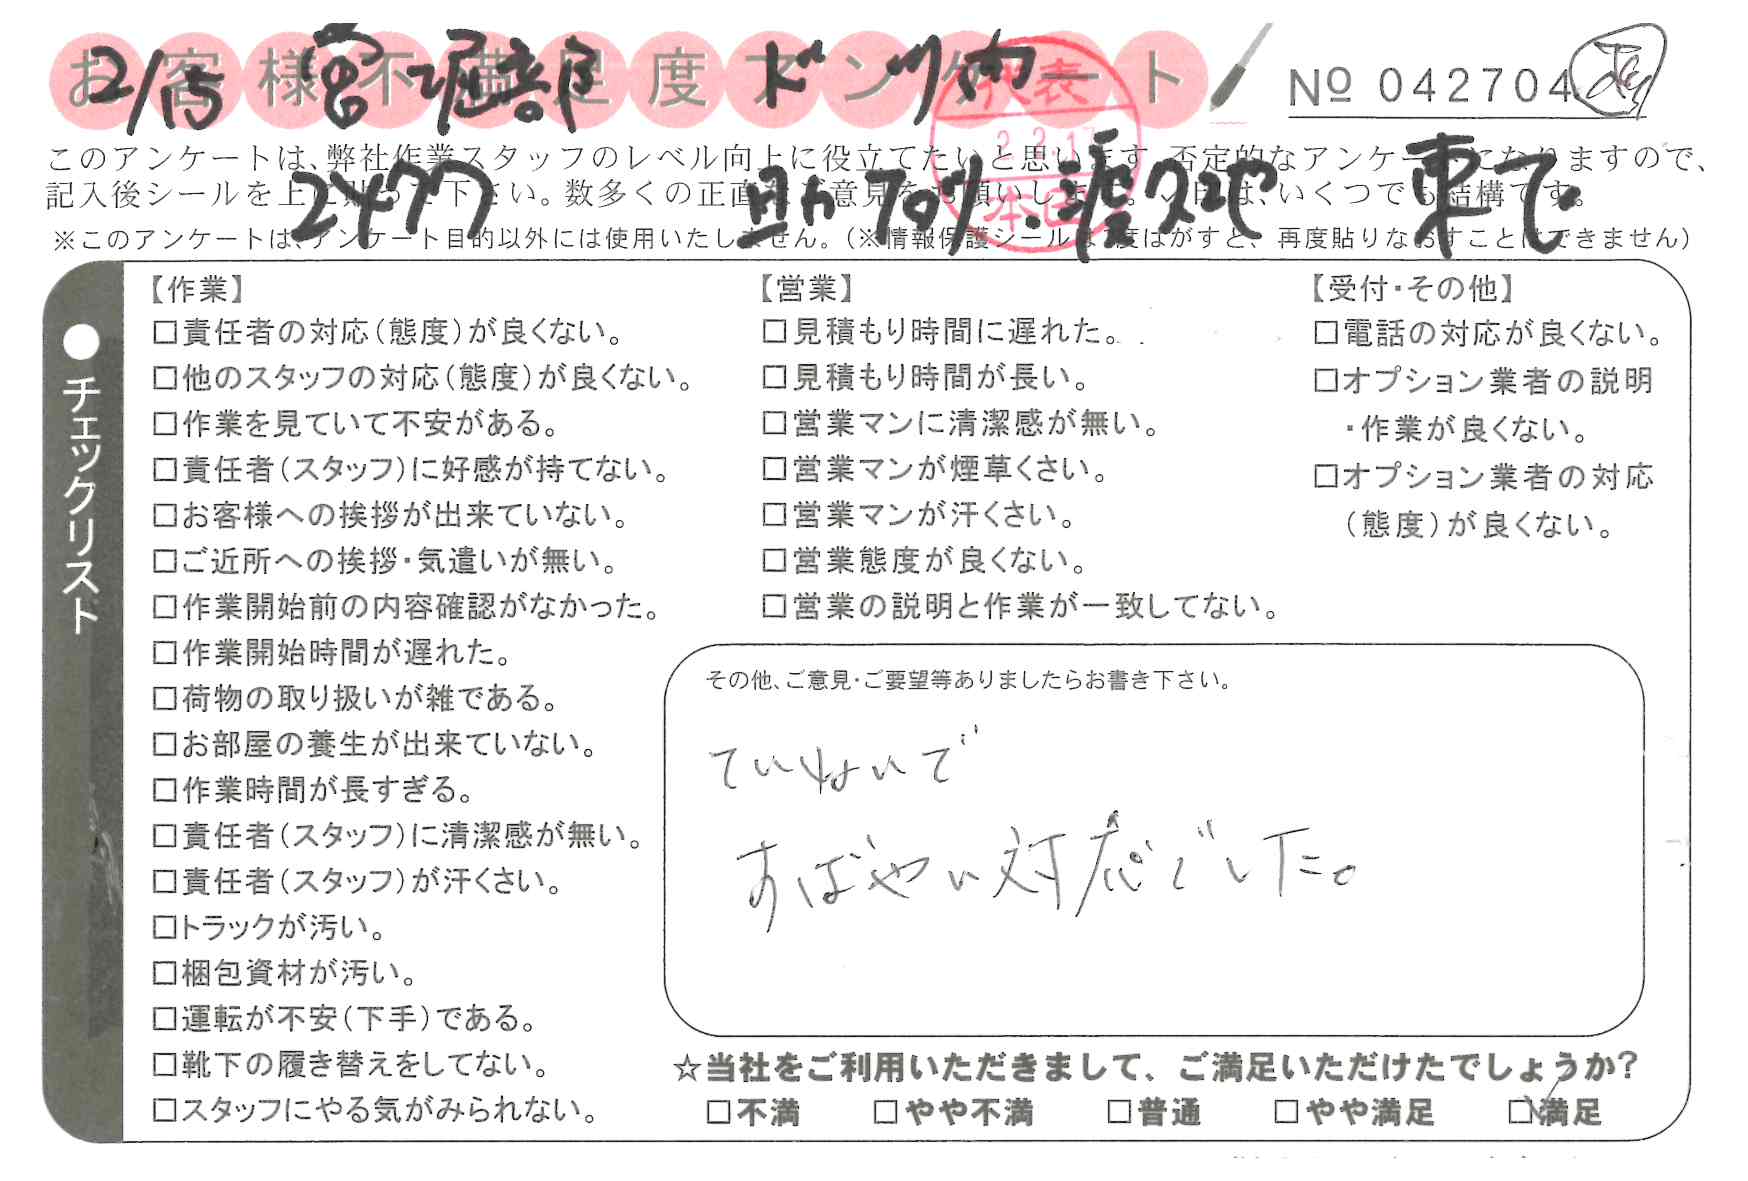 お客様不満足度アンケート
№ 042704
2/15
代表
本田
このアンケートは、弊社作業スタッフのレベル向上に役立てたいと思います。否定的なアンケートになりますので、
記入後シールを上に貼って下さい。数多くの正直なご意見をお願いします。✓目は、いくつでも結構です。
※このアンケートは、アンケート目的以外には使用いたしません。(※情報保護シールは1度はがすと、再度貼りなおすことはできません)
●チェックリスト
【作業】
□責任者の対応(態度)が良くない。
□他のスタッフの対応(態度)が良くない。
□作業を見ていて不安がある。
□責任者(スタッフ)に好感が持てない。
□お客様への挨拶が出来ていない。
□ご近所への挨拶・気遣いが無い。
□作業開始前の内容確認がなかった。
□作業開始時間が遅れた。
□荷物の取り扱いが雑である。
□お部屋の養生が出来ていない。
□作業時間が長すぎる。
□責任者(スタッフ)に清潔感が無い。
□責任者(スタッフ)が汗くさい。
□トラックが汚い。
□梱包資材が汚い。
□運転が不安(下手)である。
□靴下の履き替えをしてない。
□スタッフにやる気がみられない。
【営業】
□見積もり時間に遅れた。
□見積もり時間が長い。
□営業マンに清潔感が無い。
□営業マンが煙草くさい。
□営業マンが汗くさい。
□営業態度が良くない。
□営業の説明と作業が一致してない。
【受付・その他】
□電話の対応が良くない。
□オプション業者の説明
・作業が良くない。
□オプション業者の対応
(態度)が良くない。
その他、ご意見・ご要望等ありましたらお書き下さい。
ていねいで
すばやい対応でした。
☆当社をご利用いただきまして、ご満足いただけたでしょうか?
□不満 □やや不満 □普通 □やや満足 ☑満足